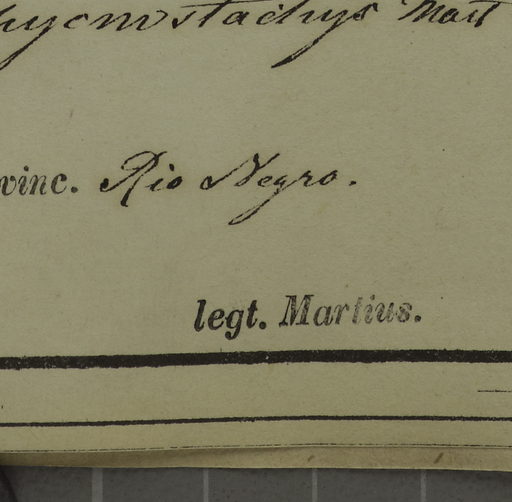 hycnostachys Mart
vinc. Rio Negro.
legt. Martius.